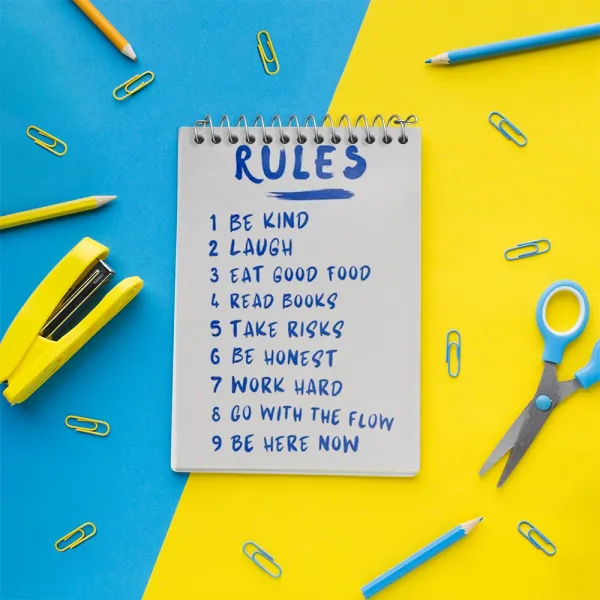 RULES
1 BE KIND
2 LAUGH
3 EAT GOOD FOOD
4 READ BOOKS
5 TAKE RISKS
6 BE HONEST
7 WORK HARD
8 GO WITH THE FLOW
9 BE HERE NOW